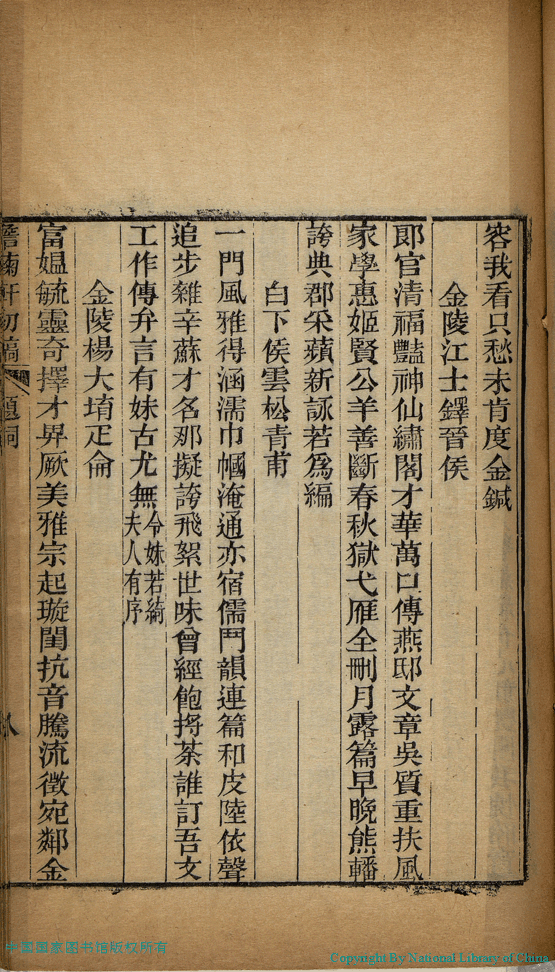 容我看只愁未肯度金鍼
金陵江士鐸晉侯
郎官清福豔神仙繡閣才華萬口傳燕邸文章吳質重扶風
家學惠姬賢公羊善斷春秋獄弋雁全刪月露篇早晚熊轓
誇典郡采蘋新詠若爲編
白下侯雲松青甫
一門風雅得涵濡巾幗淹通亦宿儒鬥韻連篇和皮陸依聲
追步雜辛蘇才名那擬誇飛絮世味曾經飽捋荼誰訂吾文
工作傳弁言有妹古尤無令妹若綺
夫人有序
金陵楊大堉疋侖
富媼毓靈奇擇才畀厥美雅宗起璇閨抗音騰流徵宛鄰金
澹菊軒初稿 題詞 八
中国国家图书馆版权所有
Copyright By National Library of China